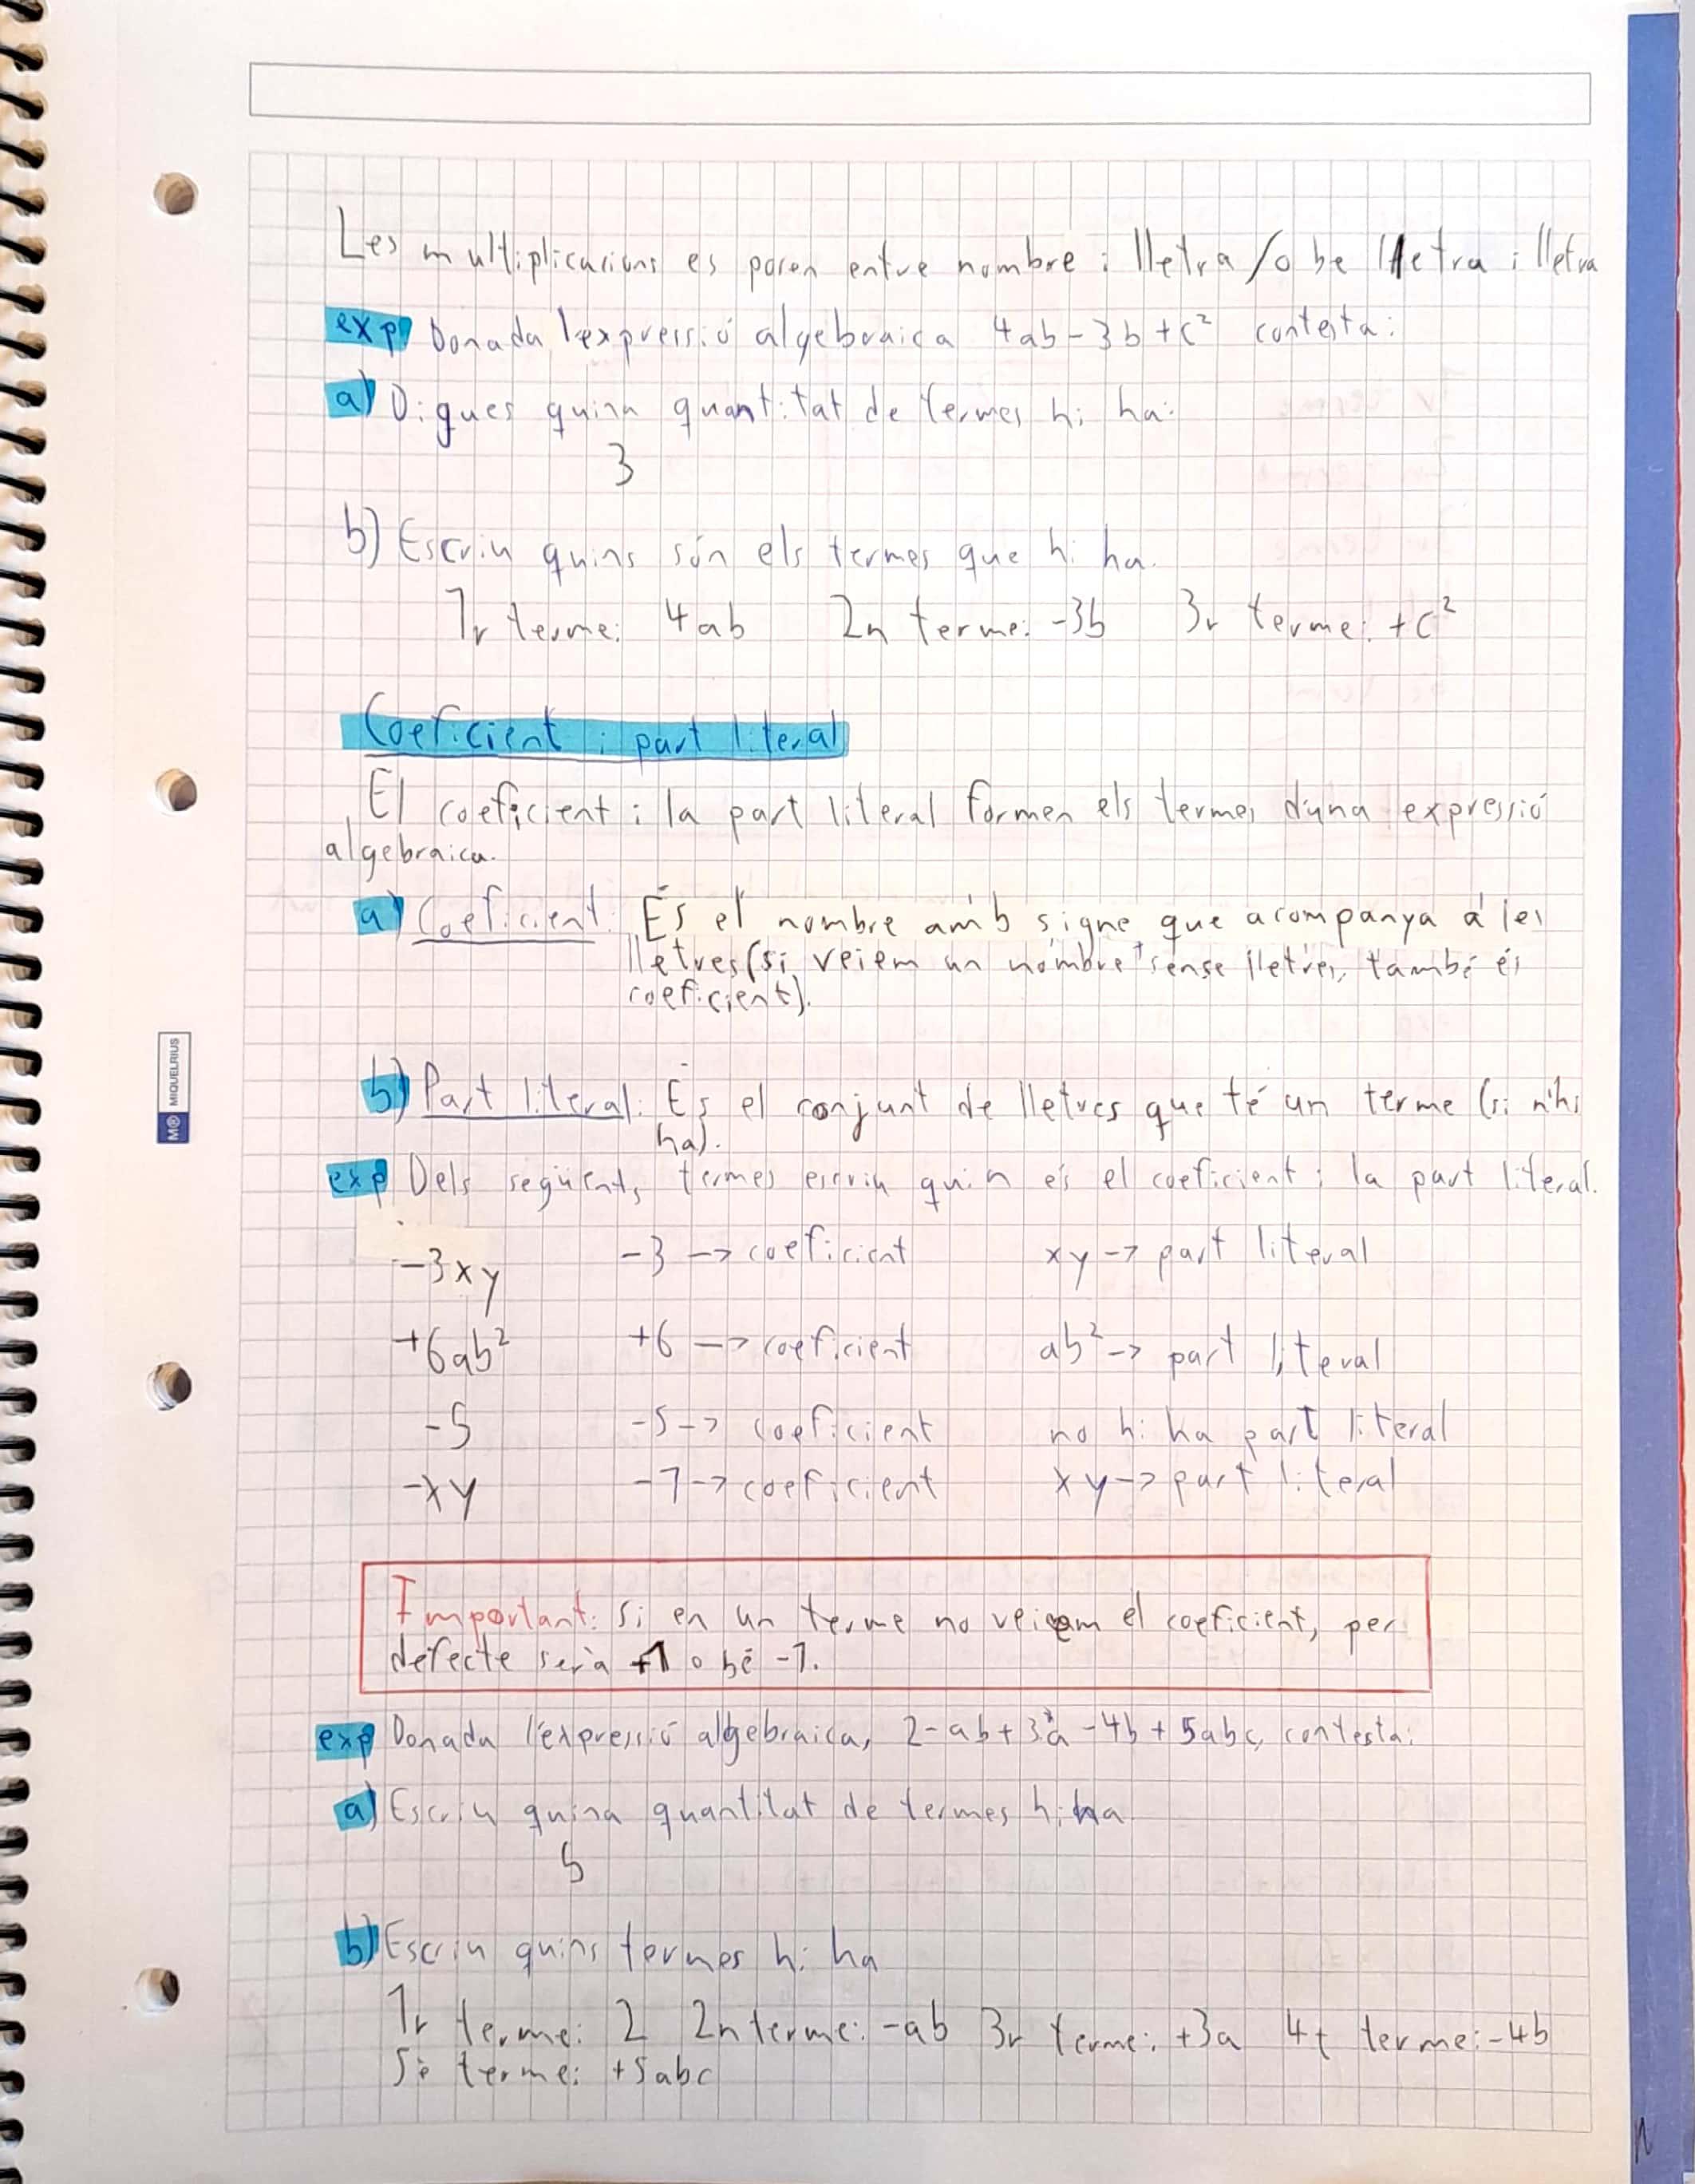 Les multiplicacions es posen entre nombre i lletra/o be lletra i lletra
exp: Donada l'expressió algebraica 4ab-3b+c² contesta:
a) Digues quina quantitat de termes hi ha:
3
b) Escriu quins són els termes que hi ha.
1r terme: 4ab 2n terme: -3b 3r terme: +c²
Coeficient i part literal
El coeficient i la part literal formen els termes d'una expressió
algebraica.
a) Coeficient: És el nombre amb signe que acompanya a les
lletres (si veiem un nombre sense lletres, també és
coeficient).
b) Part literal: És el conjunt de lletres que té un terme (si n'hi
ha).
exp Dels següents termes escriu quin és el coeficient i la part literal.
-3xy -3 -> coeficient xy -> part literal
+6ab² +6 -> coeficient ab² -> part literal
-5 -5 -> coeficient no hi ha part literal
-xy -1 -> coeficient xy -> part literal
Important: Si en un terme no veiem el coeficient, per
defecte serà +1 o bé -1.
exp Donada l'expressió algebraica, 2-ab+3a-4b+5abc, contesta:
a) Escriu quina quantitat de termes hi ha.
5
b) Escriu quins termes hi ha
1r terme: 2 2n terme: -ab 3r terme: +3a 4t terme: -4b
5è terme: +5abc
M® MIQUELRIUS